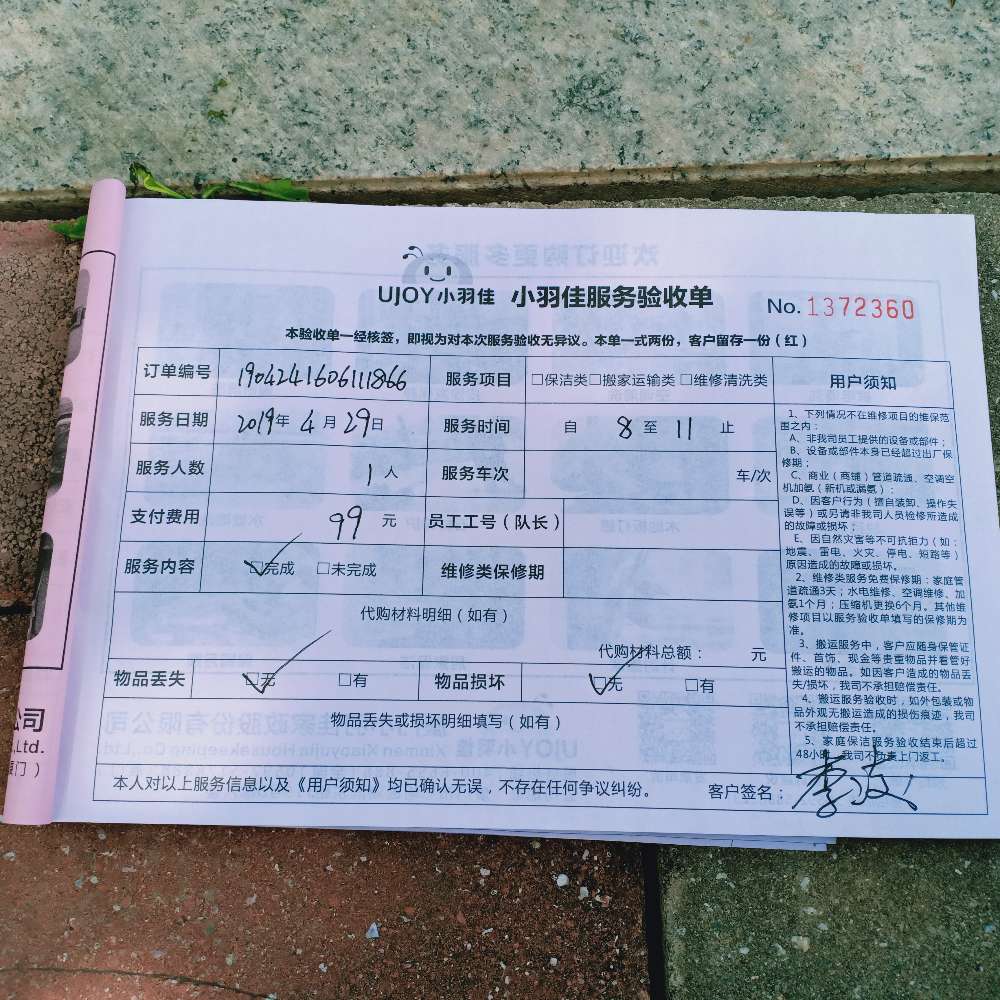 UJOY小羽佳 小羽佳服务验收单 No.1372360
本验收单一经核签，即视为对本次服务验收无异议。本单一式两份，客户留存一份（红）
订单编号 1904241606111866 服务项目 □保洁类□搬家运输类 □维修清洗类
服务日期 2019年 4月 29日 服务时间 自 8 至 11 止
服务人数 1人 服务车次 车/次
支付费用 99 元 员工工号（队长）
服务内容 □完成 □未完成 维修类保修期
代购材料明细（如有）
代购材料总额： 元
物品丢失 □无 □有 物品损坏 □无 □有
物品丢失或损坏明细填写（如有）
本人对以上服务信息以及《用户须知》均已确认无误，不存在任何争议纠纷。 客户签名：
用户须知
1、下列情况不在维修项目的维保范
围之内：
A、非我司员工提供的设备或部件；
B、设备或部件本身已经超过出厂保
修期；
C、商业（商铺）管道疏通、空调空
机加氨（新机或漏氨）；
D、因客户行为（擅自装卸、操作失
误等）或另请非我司人员检修所造成
的故障或损坏；
E、因自然灾害等不可抗拒力（如：
地震、雷电、火灾、停电、短路等）
原因造成的故障或损坏。
2、维修类服务免费保修期：家庭管
道疏通3天；水电维修、空调维修、加
氨1个月；压缩机更换6个月。其他维
修项目以服务验收单填写的保修期为
准。
3、搬运服务中，客户应随身保管证
件、首饰、现金等贵重物品并看管好
搬运的物品。如因客户造成的物品丢
失/损坏，我司不承担赔偿责任。
4、搬运服务验收时，如外包装或物
品外观无搬运造成的损伤痕迹，我司
不承担赔偿责任。
5、家庭保洁服务验收结束后超过
48小时，我司不负责上门返工。
公司
,Ltd.
厦门）